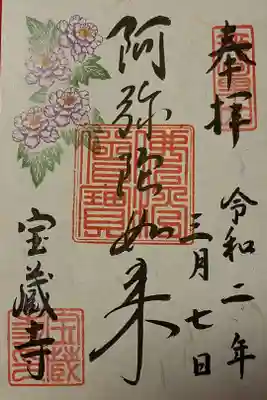 奉拝
令和二年
三月七日
阿弥陀如来
宝蔵寺